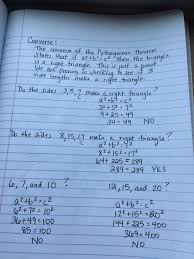 Converse:
The converse of the Pythagorean theorem
states that if a²+b²=c² then the triangle
is a right triangle. This is just a proof.
We are proving or checking to see if 3
side lengths make a right triangle.
Do the sides 3,5,7 make a right triangle?
a²+b²=c²
3²+5²=7²
9+25=49
34=49 NO
Do the sides 8,15,17 make a right triangle?
a²+b²=c²
8²+15²=17²
64+225=289
289=289 YES
6, 7, and 10?
a²+b²=c²
6²+7²=10²
36+49=100
85=100
NO
12, 15, and 20?
a²+b²=c²
12²+15²=20²
144+225=400
369=400
NO